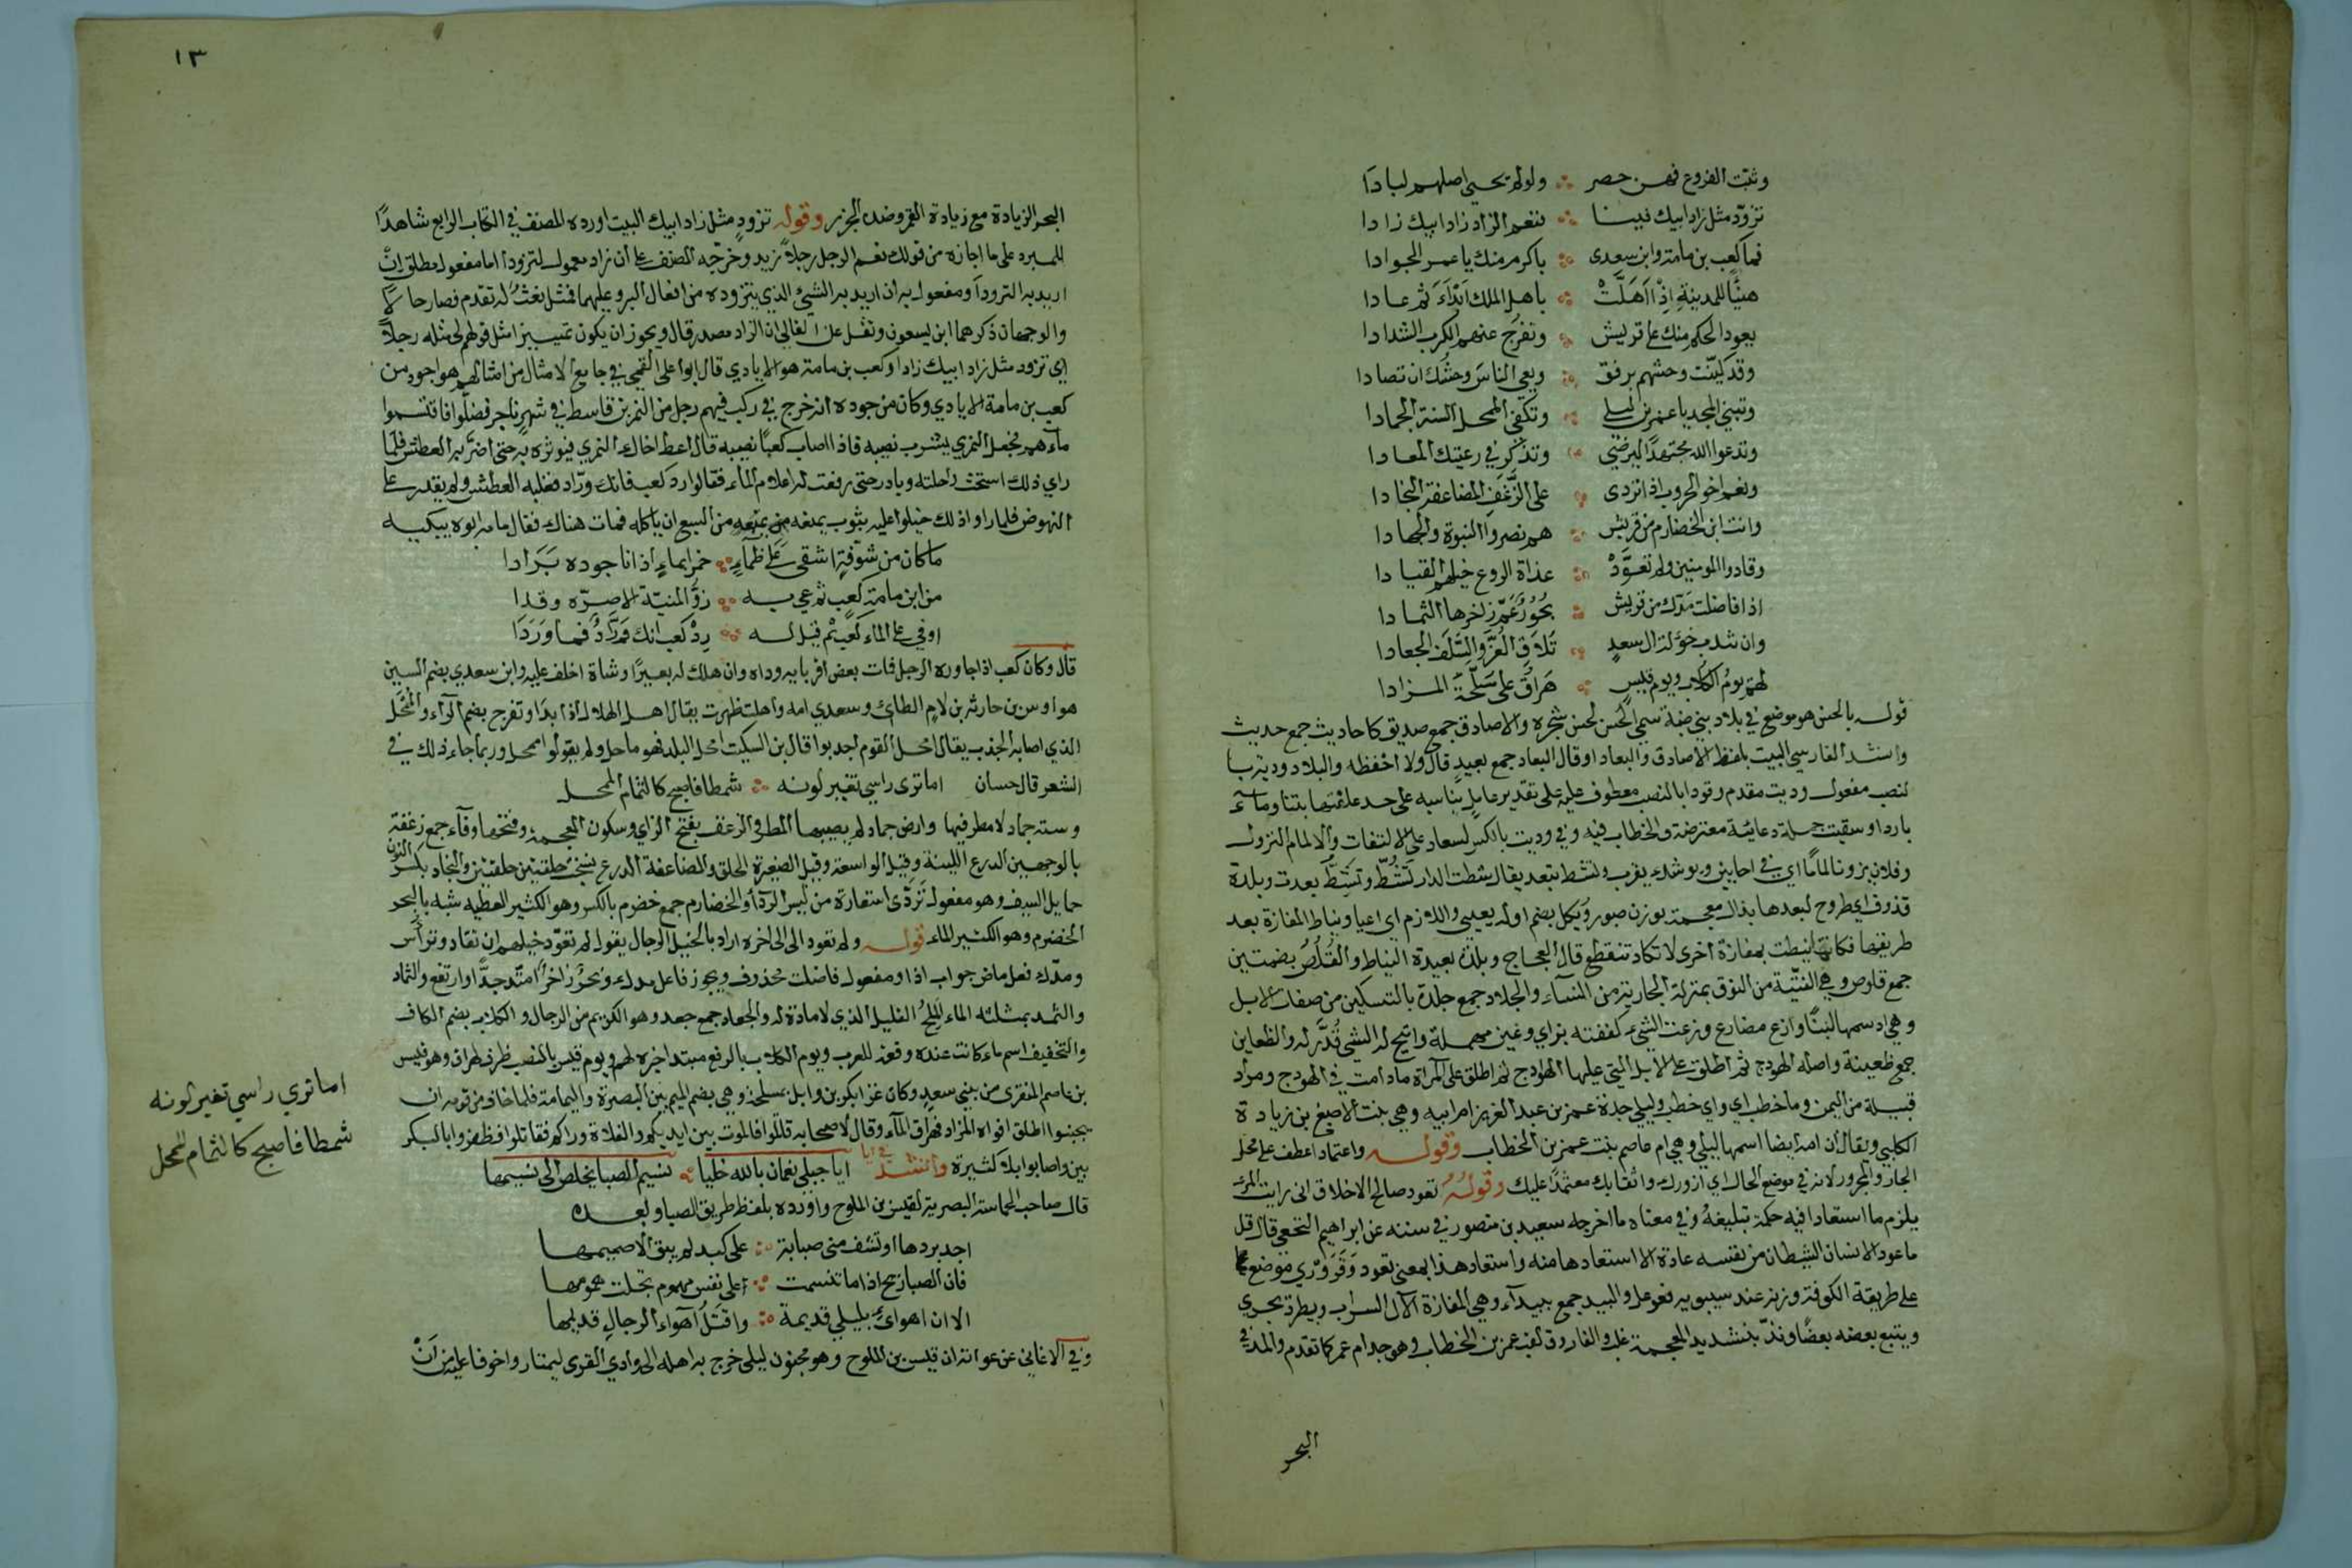 وثبت الفروع فهن خضر ∴ ولو لم يحيي اصلهم لبادا
تزود مثل زاد ابيك فينا ∴ فنعم الزاد زاد ابيك زادا
فما كعب بن مامة وابن سعدى ∴ باكرم منك يا عمر الجوادا
هنيًا للمدينة اذ اهَلَّتْ ∴ باهل الملك ابدَاَ ثم عادا
يعود الحلم منك على قريش ∴ وتفرج عنهم الكرب الشدادا
وقد لَيّنْت وحشهم برفق ∴ ويعي الناسَ وحشك ان تصادا
وتبني المجد يا عمر بن ليلى ∴ وتكفي الممحل السنة الجمادا
وتدعوا الله مجتهدًا ليرضى ∴ وتذكر في رعيتك المعادا
ونعم اخو الحروب اذا تردى ∴ على الزَّغَفِ المضاعفة النجادا
وانت ابن الخضارم من قريش ∴ هم نصروا النبوة والجهادا
وقادوا المومنين ولم تعوَّدْ ∴ غداة الروع خيلهم القيادا
اذا فاضلت مَدّك من قريش ∴ بحُورٌ عَمّ زاخرها الثمادا
وان تندب خؤلة ال سعدٍ ∴ تلاقِ الغُرَّ والسَّلَف الجعادا
لهم يومُ الكُلاب ويوم قيس ∴ هَرَاقَ على مَسَلَّحَةَ المزادا
قوله بالحسن هو موضع في بلاد بني ضبة سمي الحسن لحسن شجره والاصادق جمع صديق كاحاديث جمع حديث
وانشد الفارسي البيت بلفظ الاصادق والبعاد او قال البعاد جمع بعيدٍ قال ولا احفظه والبلاد وديت بها
لنصب مفعول وديت مقدم وقودا بالنصب معطوف عليه على تقدير عامل يناسبه على حد علفتها بتنا ومآءً
باردا وسقيت جملة دعائية معترضة والخطاب فيه وفي وديت بالكسر لسعاد على الالتفات والالمام النزول
وفلان يزونا لمامًا اي في احايين ويوشك يقرب وتشط تبعد يقال شطت الدار تَشُطّ وتَشِطّ بعدت وبلدة
قذوف اي طروح لبعدها بذال معجمة بوزن صبور ويكل بضم اوله يعيي واللازم اي اعيا ونياط المفازة بعد
طريقها فكانها نيطت بمفازة اخرى لا تكاد تنقطع قال العجاج وبلدة بعيدة النياط والقُلُصُ بضمتين
جمع قلوص وهي الفتيّة من النوق بمنزلة الجارية من النسآء والجلاد جمع جلدة بالتسكين من صفات الابل
وهي ادسمها لبنًا وازع مضارع وزعت الشيء كففته بزاي وعين مهملة واتيح له الشي قُدّر له والظعاين
جمع ظعينة واصله الهودج ثم اطلقت على الابل التي عليها الهوادج ثم اطلق على المراة ما دامت في الهودج ومراد
قبيلة من اليمن وما خطبي اي واي خطب وليلى جدة عمر بن عبد العزيز ام ابيه وهي بنت الاصبغ بن زيادة
الكلبي ويقال ان امه ايضا اسمها ليلى وهي ام عاصم بنت عمر بن الخطاب وقوله واعتمادا عطف على محل
الجار والمجرور لانه في موضع الحال اي ازورك واثقا بك معتمدًا عليك وقولهُ تعود صالح الاخلاق اني رايت المرء
يلزم ما استعادا فيه حكمة بليغةُ وفي معناه ما اخرجه سعيد بن منصور في سننه عن ابراهيم النخعي قال قل
ما عود الانسان الشيطان من نفسه عادة الا استعادها منه واستعاد هذا بمعنى تعود وقَرَوْرَي موضع
على طريقة الكوفة وزنه عند سيبويه فعوعل والبيد جمع بيدآء وهي المفازة الآل السراب ويطرد يجري
ويتبع بعضه بعضًا ونذّ بتشديد المعجمة غلب والفاروق لقب عمر بن الخطاب وهو جد ام عمر كما تقدم والمد في
البحر
١٣
البحر الزيادة مع زيادة الغمر وضده الجزر وقوله تزود مثل زاد ابيك البيت اورده المصنف في الكتاب الرابع شاهدًا
للمبرد على ما اجازه من قولك نعم الرجل رجلاً زيد وخرّجه المصنف على أن زاد معمول لتزود اما مفعول مطلق اِنْ
اريد به التزود اَو مفعول به ان اريد به الشيئ الذي يتزوده من افعال البر وعليهما فمثل نعتٌ له تقدم فصار حالاً
والوجهان ذكرهما ابن يسعون ونقل عن الفالي ان الزاد مصدر قال ويجوز ان يكون تمييزا مثل قولهم لي مثله رجلاً
اي تزود مثل زاد ابيك زادا وكعب بن مامة هو الايادي قال ابو اعلى القمي في جامع الامثال من امثالهم هو اجود من
كعب بن مامة الايادي وكان من جوده انه خرج في ركب فيهم رجل من النمر بن قاسط في شهر ناجر فضلّوا فاقتسموا
مآءهم فجعل النمري يشرب نصيبه فاذا اصاب كعبًا نصيبه قال اعط اخاك النمري فيوثره به حتى اضرّ به العطش فلمّا
راى ذلك استحث راحلته وبادر حتى رفعت له اعلام المآء فقالوا رد كعب فانك ورّاد فغلبه العطش ولم يقدر على
النهوض فلما راوا ذلك خيلوا عليه بثوب يمنعه من السبع ان ياكله فمات هناك فقال مامه ابوه يبكيه
ما كان من سوقةٍ اسقى على ظمآءٍ ∴ خمرا بماءٍ اذا ناجوده بَرَدا
من ابن مامة كعب ثم عي به ∴ زوُّ المنيّة الا حِرّه وقدا
اوفى على الماء كعبٌ ثم قيل له ∴ رِدْ كعب انك وَرّادٌ فما وَرَدَا
قال وكان كعب اذا جاوره الرجل فمات بعض اقربايه وداه وان هلك له بعيرًا وشاة اخلف عليه وابن سعدي بضم السين
هو اوس بن حارثه بن لامٍ الطائ وسعدي امه واهلت ظهرت يقال اهل الهلال اذا بدا وتفرج بضم الرآء والمُمْحَل
الذي اصابه الجذب يقال امحل القوم اجدبوا قال بن السكيت امحل البلد فهو ماحل ولم يقولوا ممحل وربما جاء ذلك في
الشعر قال حسان اما ترى راسي تغير لونه ∴ شمطا فاصبح كالثمام الممحل
وسنة جماد لا مطر فيها وارض جماد لم يصيبها المطر والزغف بفتح الزاي وسكون المعجمة وفتحها وفآء جمع زغفة
بالوجهين الدرع اللينة وقيل الواسعة وقيل الصغيرة الحلق والمضاعفة الدرع نسجت حلقتين حلقتين والنجاد بكسر النون
حمايل السيف وهو مفعول تَردّى استعارة من لبس الردآء والخضارم جمع خضرم بالكسر وهو الكثير العطيه شبه بالبحر
الخضرم وهو الكثير الماء قوله ولم تعود الى الخاخره اراد بالخيل الرجال يقول لم تعوّد خيلهم ان تقاد وترأس
ومدّك فعل ماض جواب اذا ومفعول فاضلت محذوف وبحور فاعل مدك وبحرٌ زاخرٌ امتد جدًّا وارتفع والثماد
والثمد بمثلثه الماء المِلحُ القليل الذي لا مادة له والجعاد جمع جعد وهو الكريم من الرجال و الكلاب بضم الكاف
والتخفيف اسم ماء كانت عنده وقعة للعرب ويوم الكلاب بالرفع مبتدا خبره لهم ويوم قيس بالنصب ظرف لهراق وهو قيس
بن عاصم المنقري من بني سعدٍ وكان غزا بكر بن وايل بمسلحة وهي بضم الميم بين البصرة واليمامة فلما خاف من قومه ان
يجبنوا اطلق افواه المزاد فهراق المآء وقال لاصحابه قاتلوا فالموت بين ايديكم والفلاة وراكم فقاتلوا فظفروا بالبكر
بين واصابوا ابلا كثيرة وانشد في ايا ايا جبلي نعمان بالله خليا ∴ نسيم الصبا يخلص الى نسيمها
قال صاحب الحماسة البصرية لقيس بن الملوح واورده بلفظ طريق الصبا وبعده
اجد بردها او تشف مني صبابة ∴ على كبد لم يبق الا صميمها
فان الصبا ريح اذا ما تنسمت ∴ على نفس مهموم تجلت همومها
الا ان اهوائي بليلى قديمة ∴ واقتل اهوآء الرجال قديمها
وفي الاغاني عن عوانة ان قيس بن الملوح وهو مجنون ليلى خرج به اهله الى وادي القرى ليمتاروا خوفا عليه من انْ
اما تري راسي تغير لونه
شمطا فاصبح كالثمام الممحل